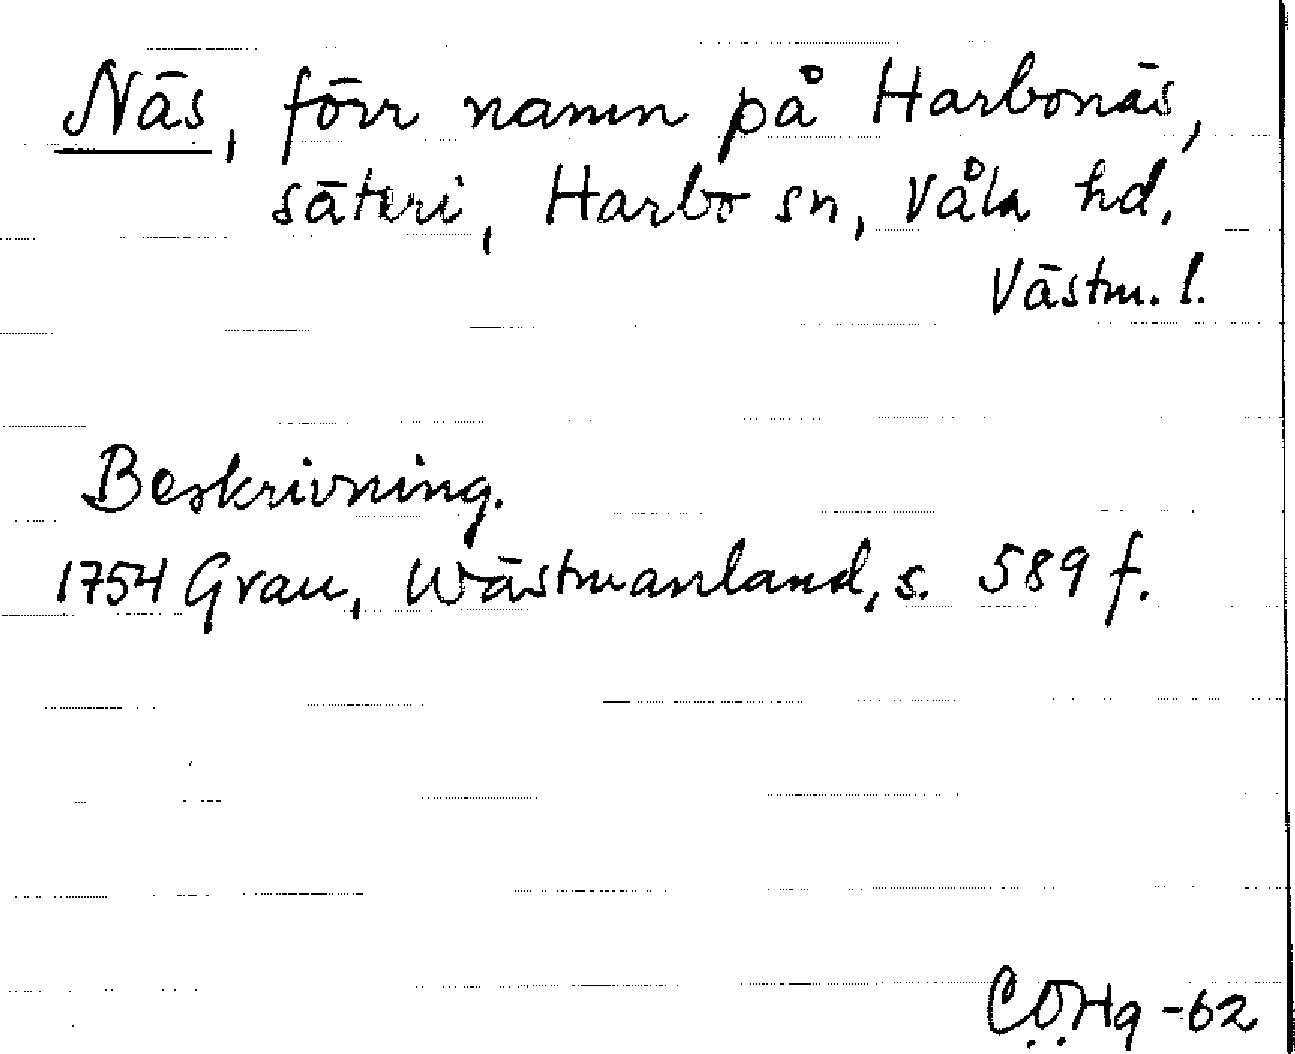 Näs, förr namn på Harbonäs,
säteri, Harbo sn, Våla hd.
Västm. l.
Beskrivning.
1754 Grau, Wästmanland, s. 589 f.
CÖHg -62